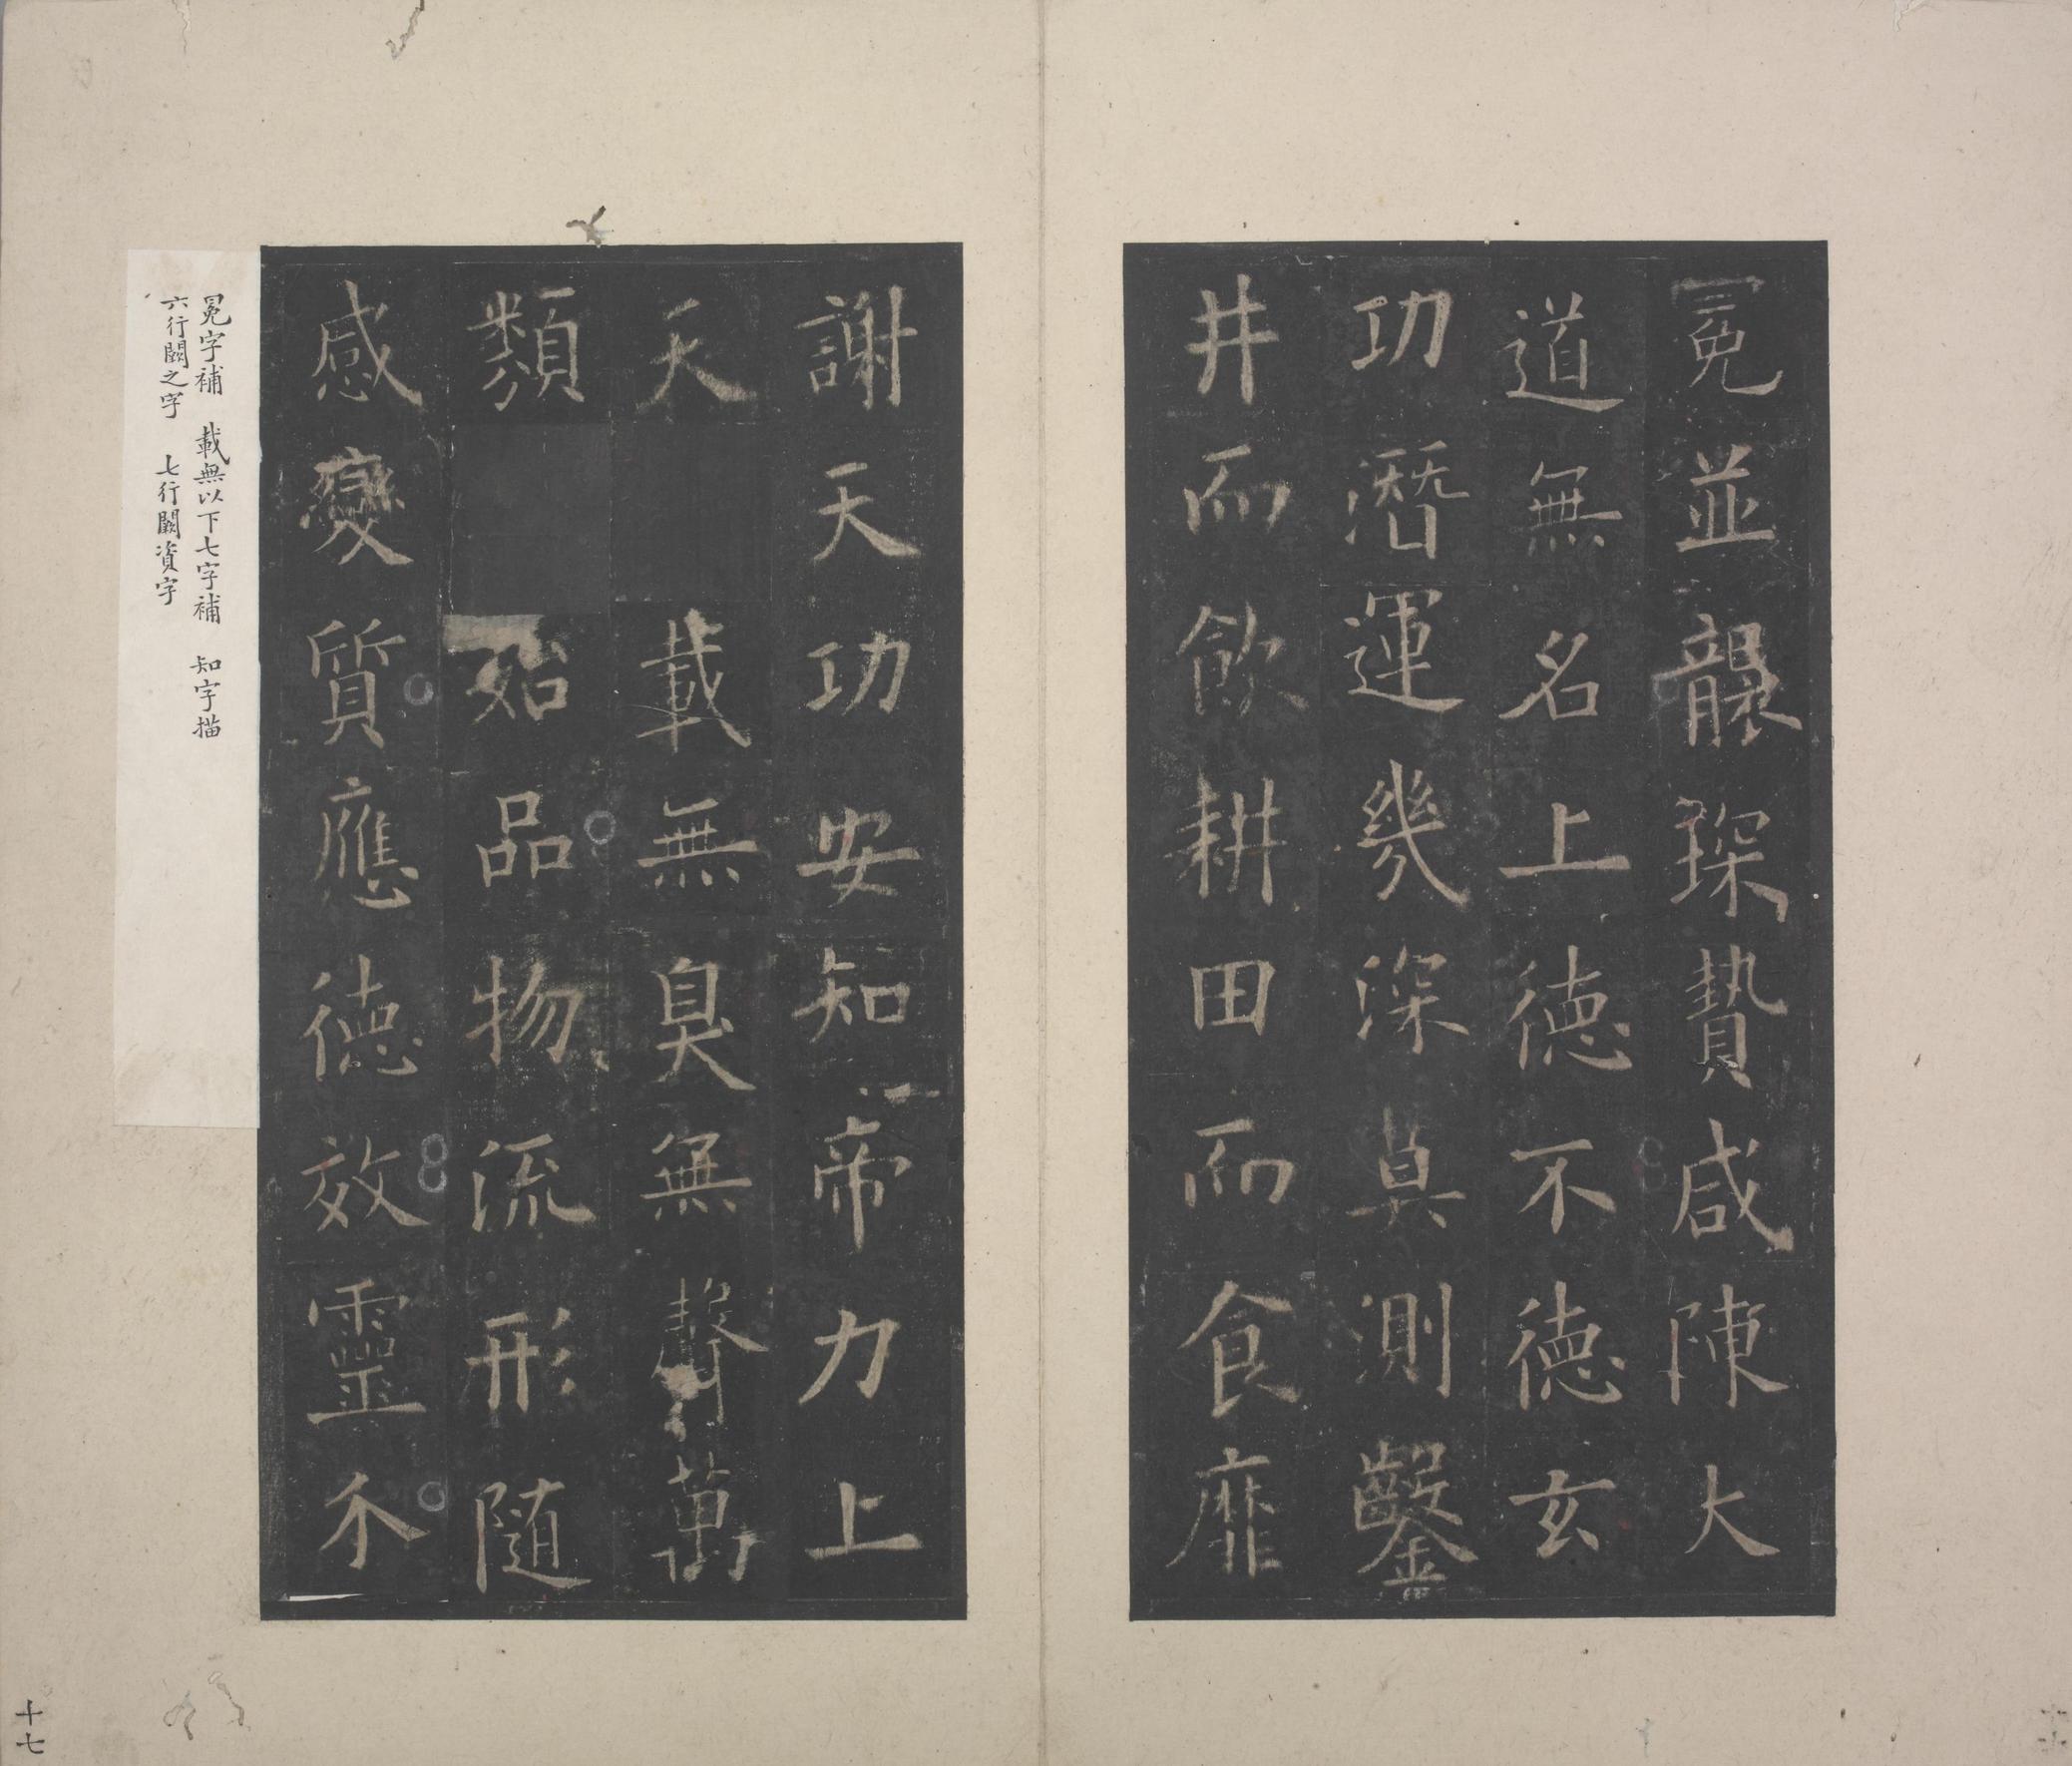 冕並襲琛贄咸陳大
道無名上德不德玄
功潛運幾深莫測鑿
井而飲耕田而食靡
謝天功安知帝力上
天載無臭無聲萬
類始品物流形隨
感變質應德效靈不
冕字補 載無以下七字補 知字描
六行闕之字 七行闕資字
十七